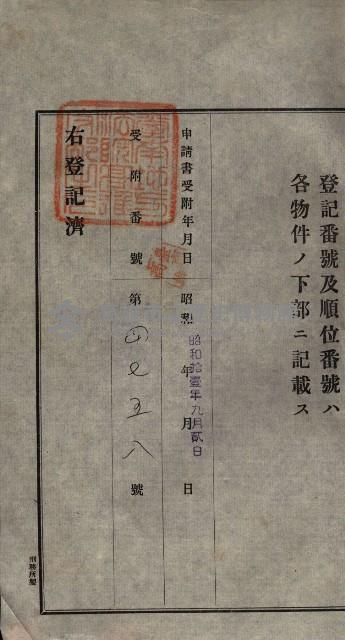 登記番號及順位番號ハ
各物件ノ下部ニ記載ス
申請書受附年月日 昭和 年 月 日
昭和拾壹年九月貳日
受附番號 第四七五八號
右登記濟
刑務所製